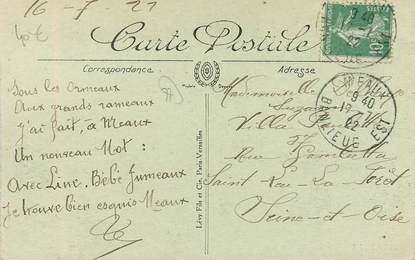 16-7-22
Carte Postale
Correspondance
Adresse
Sous les Ormeaux
Aux grands rameaux
J'ai fait, à Meaux
Un nouveau Mot :
Avec Line, Bébé Jumeaux
Je trouve bien esquis Meaux
Lévy Fils et Cie, Paris-Versailles
Mademoiselle
Suzanne
Villa
Rue Gambetta
Saint-Leu-La-Forêt
Seine-et-Oise
MEAUX
9 40
22
BANLIEUE EST
9 40
22
10